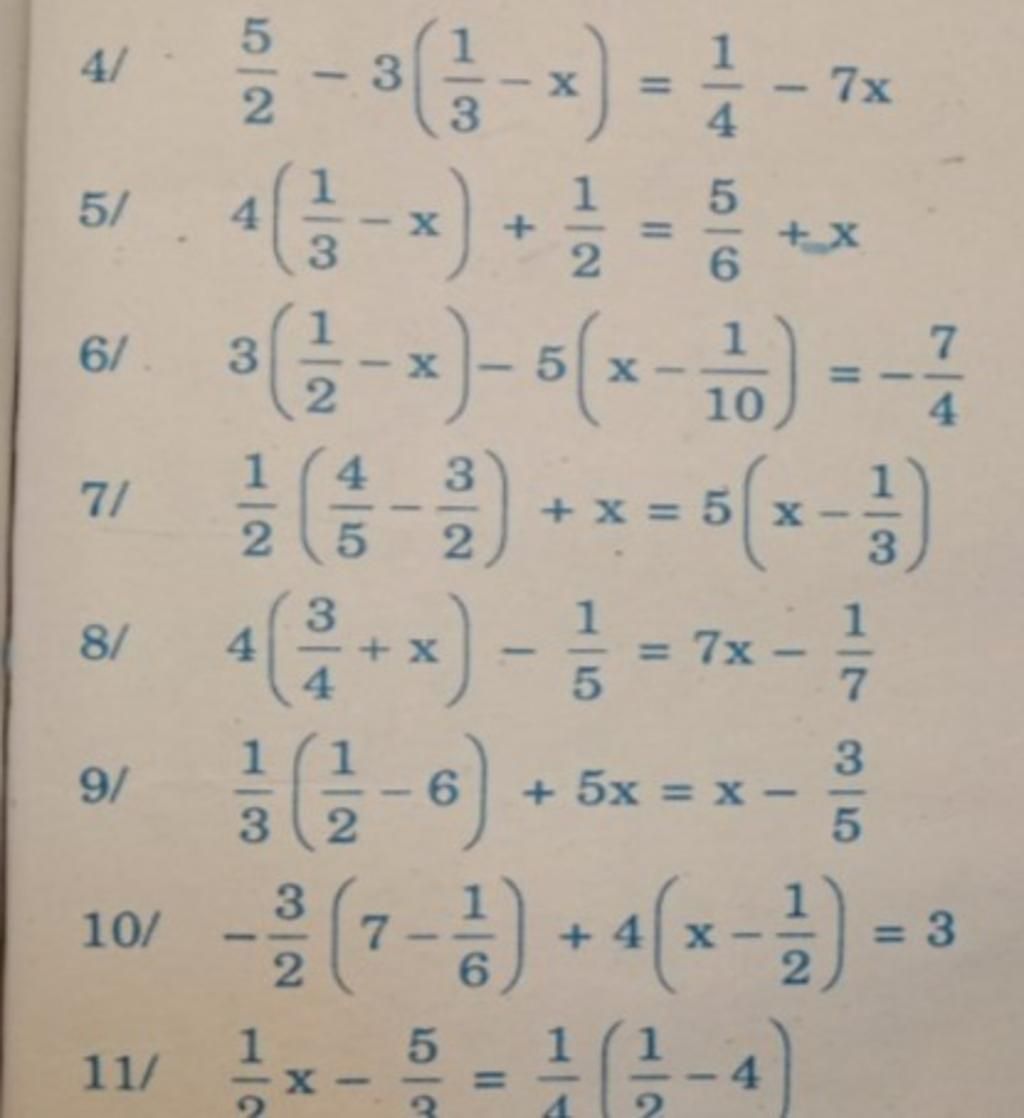 4/ 5/2 - 3(1/3 - x) = 1/4 - 7x
5/ 4(1/3 - x) + 1/2 = 5/6 + x
6/ 3(1/2 - x) - 5(x - 1/10) = -7/4
7/ 1/2 (4/5 - 3/2) + x = 5(x - 1/3)
8/ 4(3/4 + x) - 1/5 = 7x - 1/7
9/ 1/3 (1/2 - 6) + 5x = x - 3/5
10/ -3/2 (7 - 1/6) + 4(x - 1/2) = 3
11/ 1/2 x - 5/3 = 1/4 (1/2 - 4)